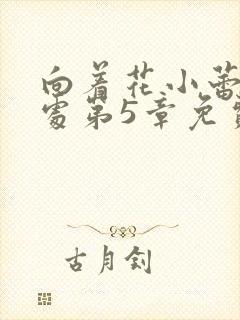 向着花小蕾
处第5章免费
古月钊